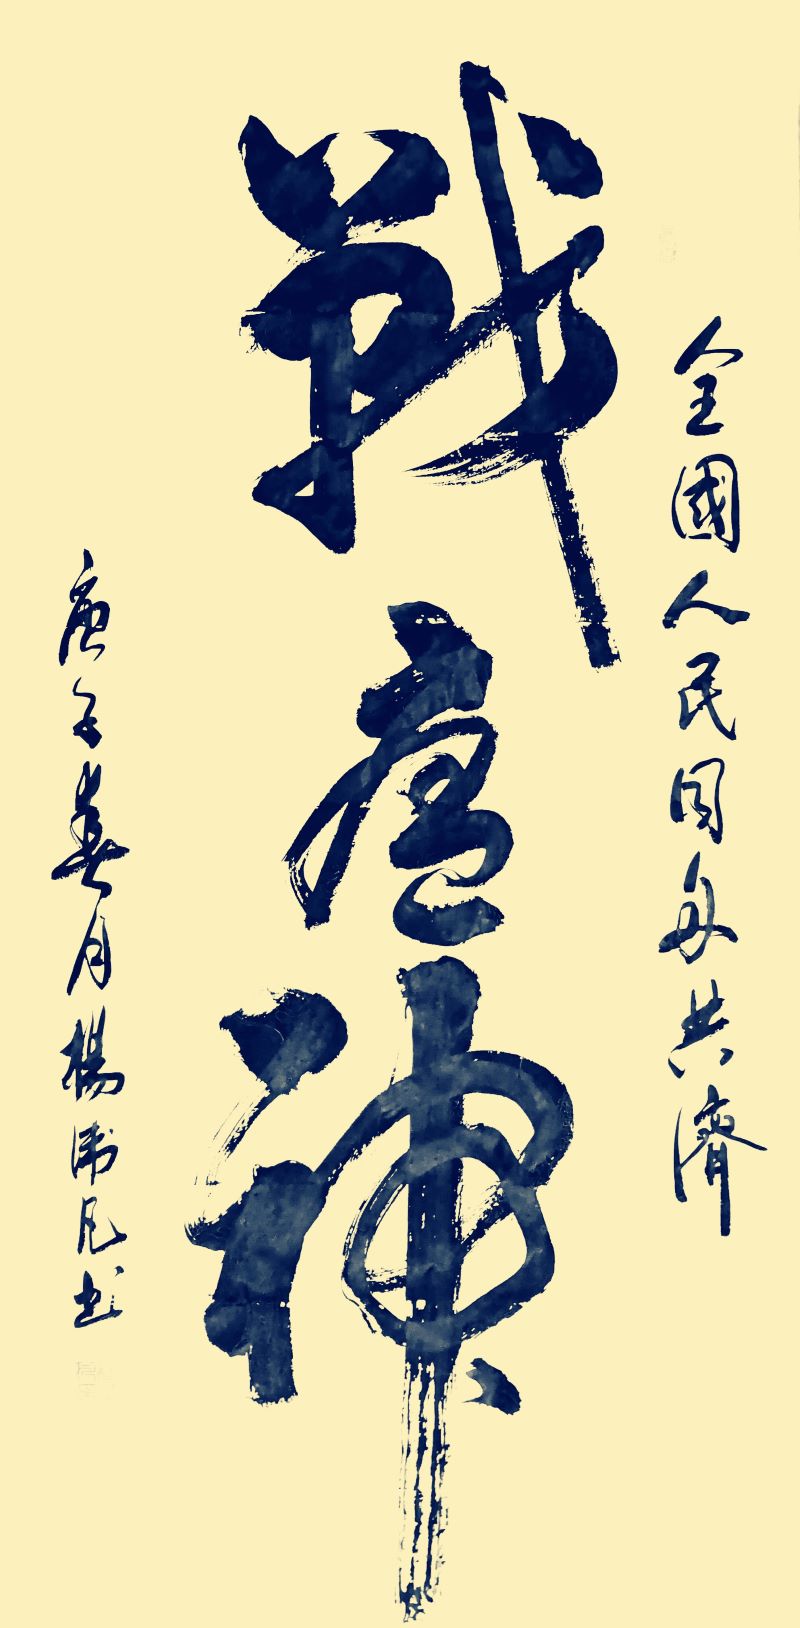 全國人民同舟共濟
戰瘟神
庚子春月楊凡书